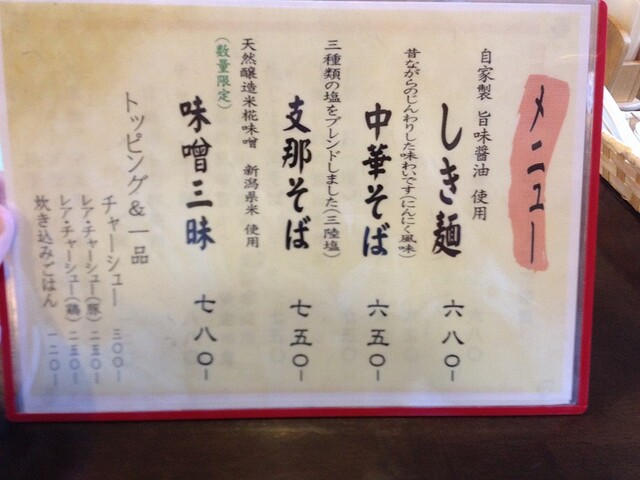 メニュー
自家製 旨味醤油 使用
しき麺 六八〇-
昔ながらのじんわりした味わいです(にんにく風味)
中華そば 六五〇-
三種類の塩をブレンドしました(三陸塩)
支那そば 七五〇-
天然醸造米糀味噌 新潟県米 使用
(数量限定)
味噌三昧 七八〇-
トッピング&一品
チャーシュー 三〇〇-
レア・チャーシュー(豚) 二五〇-
レア・チャーシュー(鶏) 二五〇-
炊き込みごはん 一二〇-